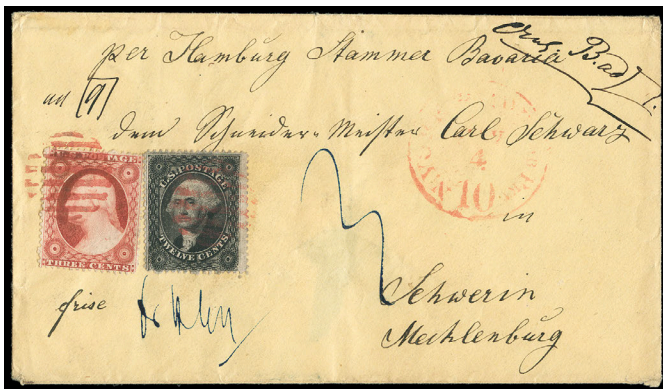 per Hamburg Stammer Bavaria
an [9]
dem Schneider-Meister Carl Schwarz
4
10
U.S. POSTAGE
TWELVE CENTS
THREE CENTS
in
3
Schwerin
Mecklenburg
frise